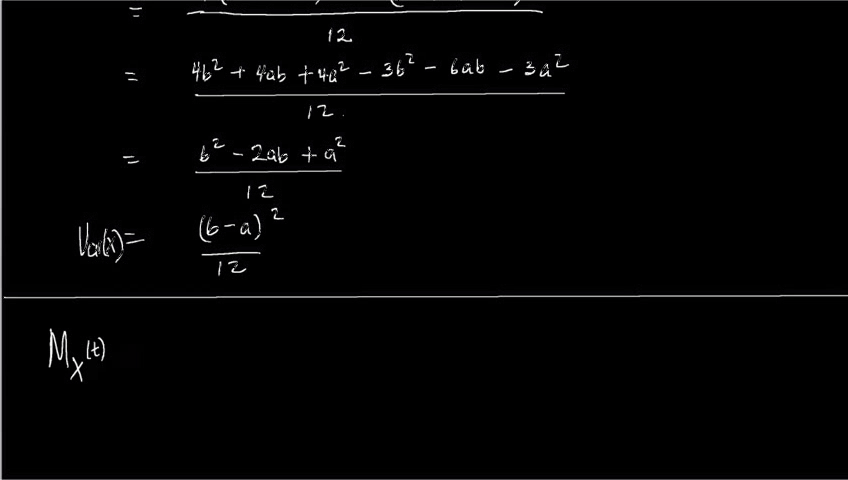 =
12
= 4b² + 4ab + 4a² - 3b² - 6ab - 3a²
12.
= b² - 2ab + a²
12
Var(x) = (b-a)²
12
M_X(t)